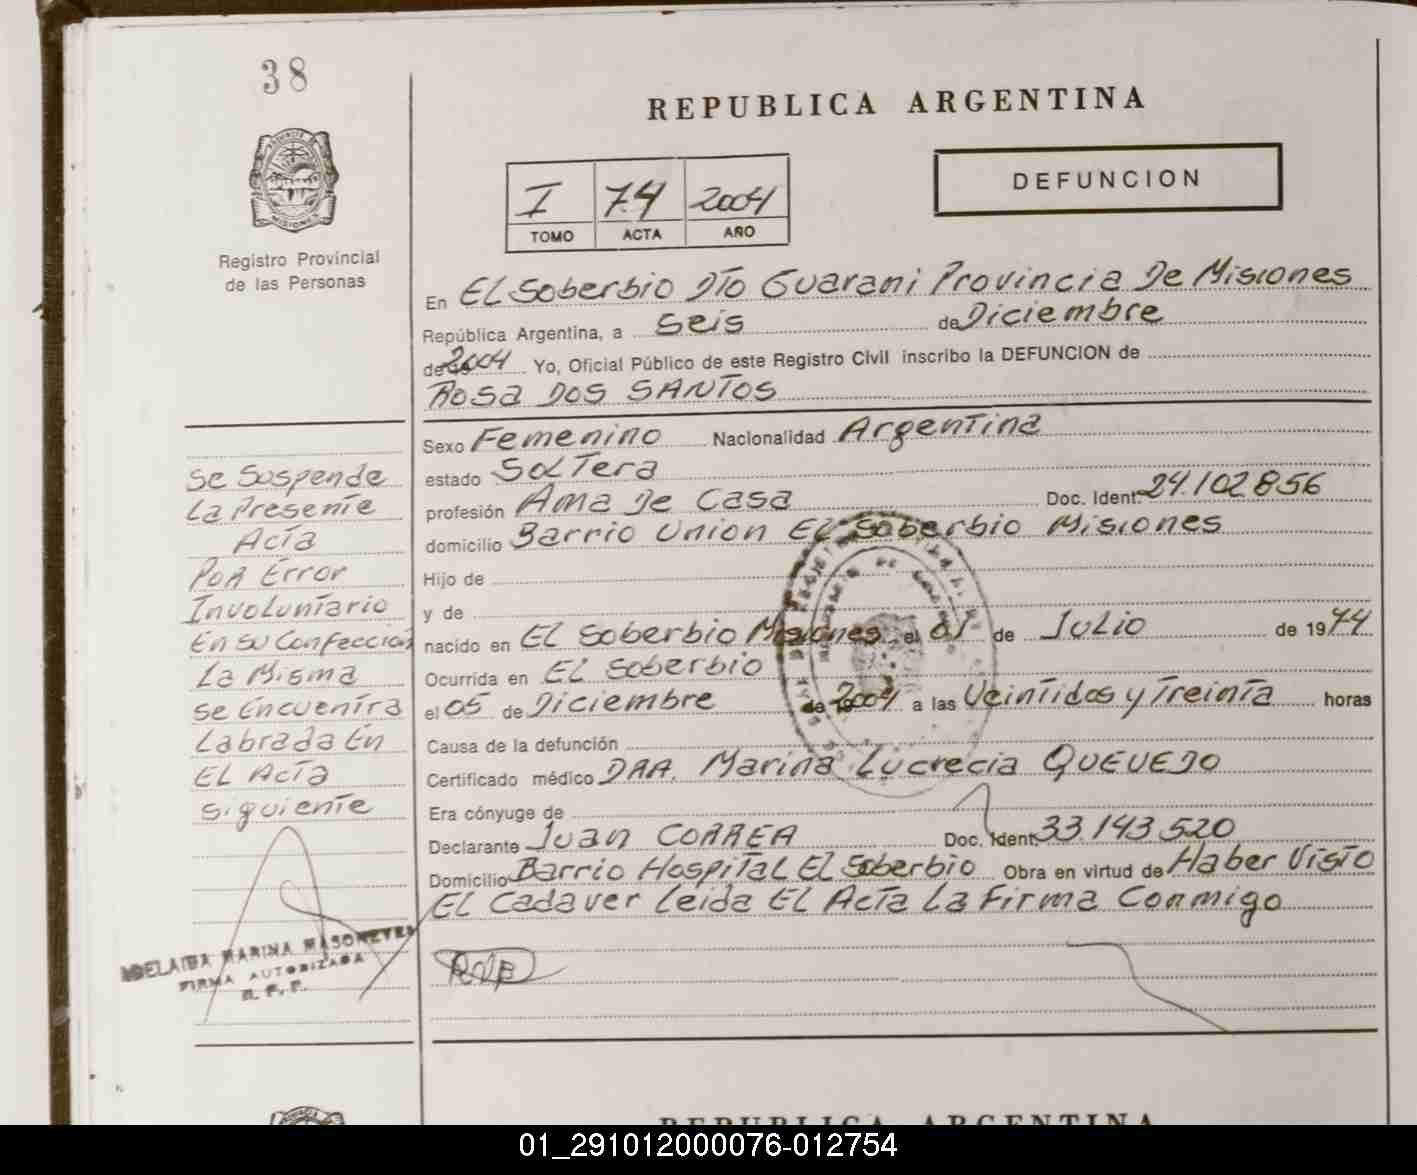 38
REPUBLICA ARGENTINA
I 74 2004
TOMO ACTA AÑO
DEFUNCION
Registro Provincial
de las Personas
En El Soberbio Dto Guarani Provincia De Misiones
República Argentina, a Seis de Diciembre
de 2004 Yo, Oficial Público de este Registro Civil inscribo la DEFUNCION de
Rosa DOS SANTOS
Sexo Femenino Nacionalidad Argentina
estado Soltera
profesión Ama De Casa Doc. Ident. 24.102.856
domicilio Barrio Union El Soberbio Misiones
Hijo de
y de
nacido en El Soberbio Misiones el 01 de Julio de 1974
Ocurrida en El Soberbio
el 05 de Diciembre de 2004 a las Veintidos y Treinta horas
Causa de la defunción
Certificado médico DRA. Marina Lucrecia QUEVEDO
Era cónyuge de
Declarante Juan CORREA Doc. Ident. 33.143.520
Domicilio Barrio Hospital El Soberbio Obra en virtud de Haber Visto
El Cadaver Leida El Acta La Firma Conmigo
Se Suspende
La Presente
Acta
Por Error
Involuntario
En Su Confeccion
La Misma
Se Encuentra
Labrada En
El Acta
Siguiente
MARINA
FIRMA AUTORIZADA
R. P. P.
REPUBLICA ARGENTINA
01_291012000076-012754